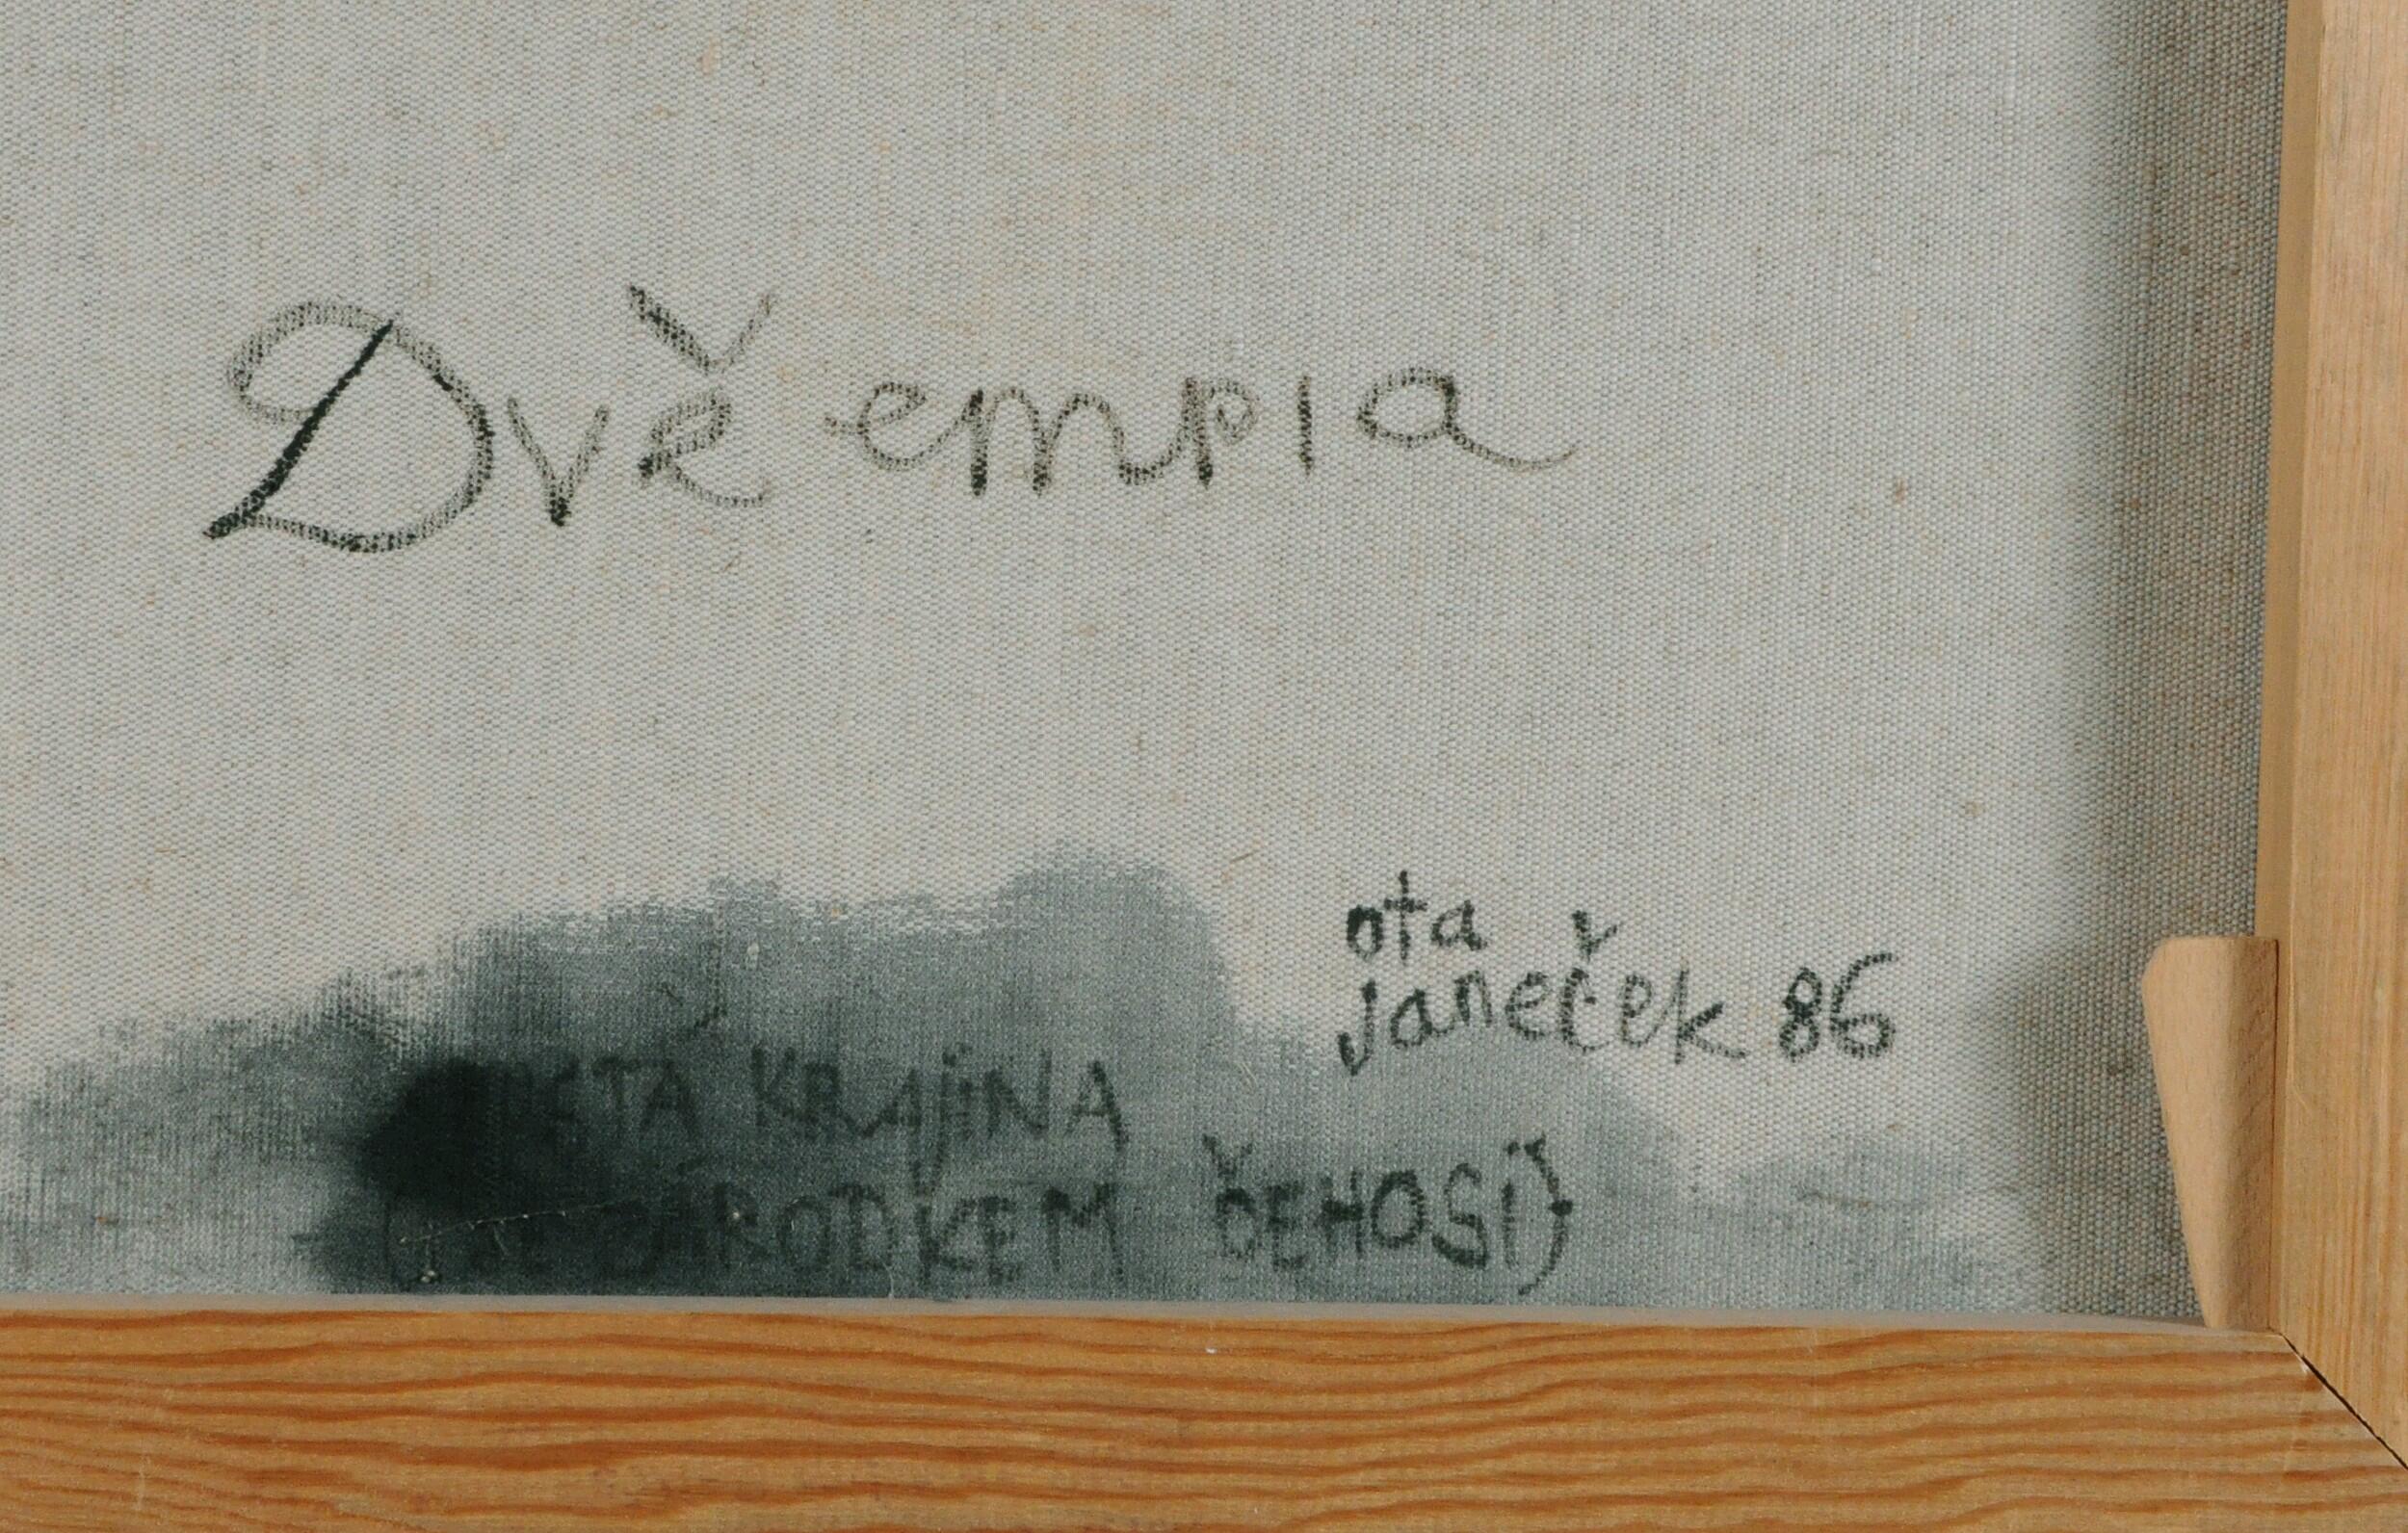 Dvě empia
ota
janeček 86
KRAjiNA
ZÁRODKEM ČEHOSi)